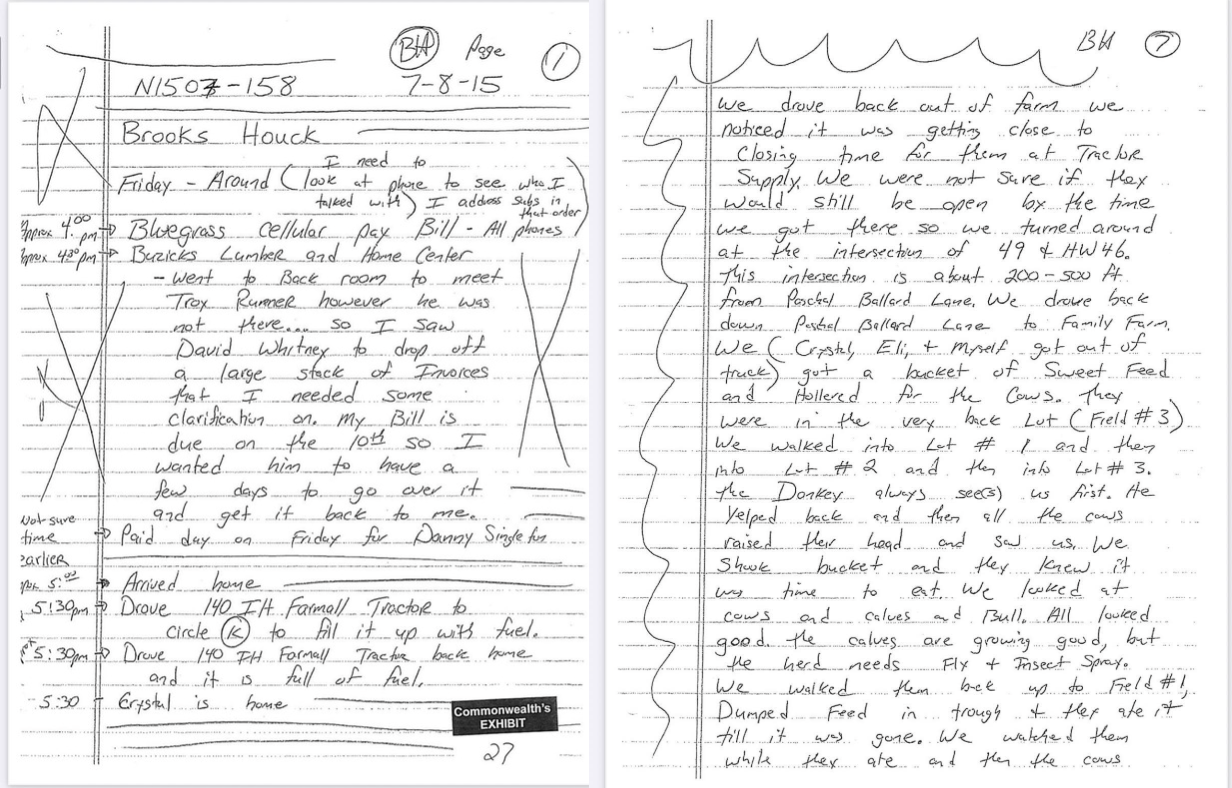 BH Page 1
N1507-158 7-8-15
Brooks Houck
I need to
Friday - Around (look at phone to see who I
talked with) I address subs in
that order
Approx 4:00 pm → Bluegrass cellular pay Bill - All phones
Approx 4:30 pm → Buzicks Lumber and Home Center
- Went to Back room to meet
Troy Runner however he was
not there... so I saw
David Whitney to drop off
a large stack of Invoices
that I needed some
clarification on. My Bill is
due on the 10th so I
wanted him to have a
few days to go over it
and get it back to me.
Not sure
time → Paid day on Friday for Danny Singleton
earlier
5:00 → Arrived home
5:30pm → Drove 140 IH Farmall Tractor to
circle K to fill it up with fuel.
5:30pm → Drove 140 IH Farmall Tractor back home
and it is full of fuel.
5:30 - Crystal is home
Commonwealth's
EXHIBIT
27
BH 7
We drove back out of farm we
noticed it was getting close to
Closing time for them at Tractor
Supply. We were not sure if they
would still be open by the time
we got there so we turned around
at the intersection of 49 & HW46.
This intersection is about 200-500 ft
from Paschal Ballard Lane. We drove back
down Pashal Ballard Lane to Family Farm.
We (Crystal, Eli, + Myself got out of
truck) got a bucket of Sweet Feed
and Hollered for the Cows. They
were in the very back Lot (Field #3)
We walked into Lot # 1 and then
into Lot # 2 and then into Lot #3.
the Donkey always see(s) us first. He
Yelped back and then all the cows
raised their head and saw us. We
Shook bucket and they knew it
was time to eat. We looked at
cows and calves and Bull. All looked
good. the calves are growing good, but
the herd needs Fly + Insect Spray.
We walked them back up to Field #1,
Dumped Feed in trough + they ate it
till it was gone. We watched them
while they ate and then the cows